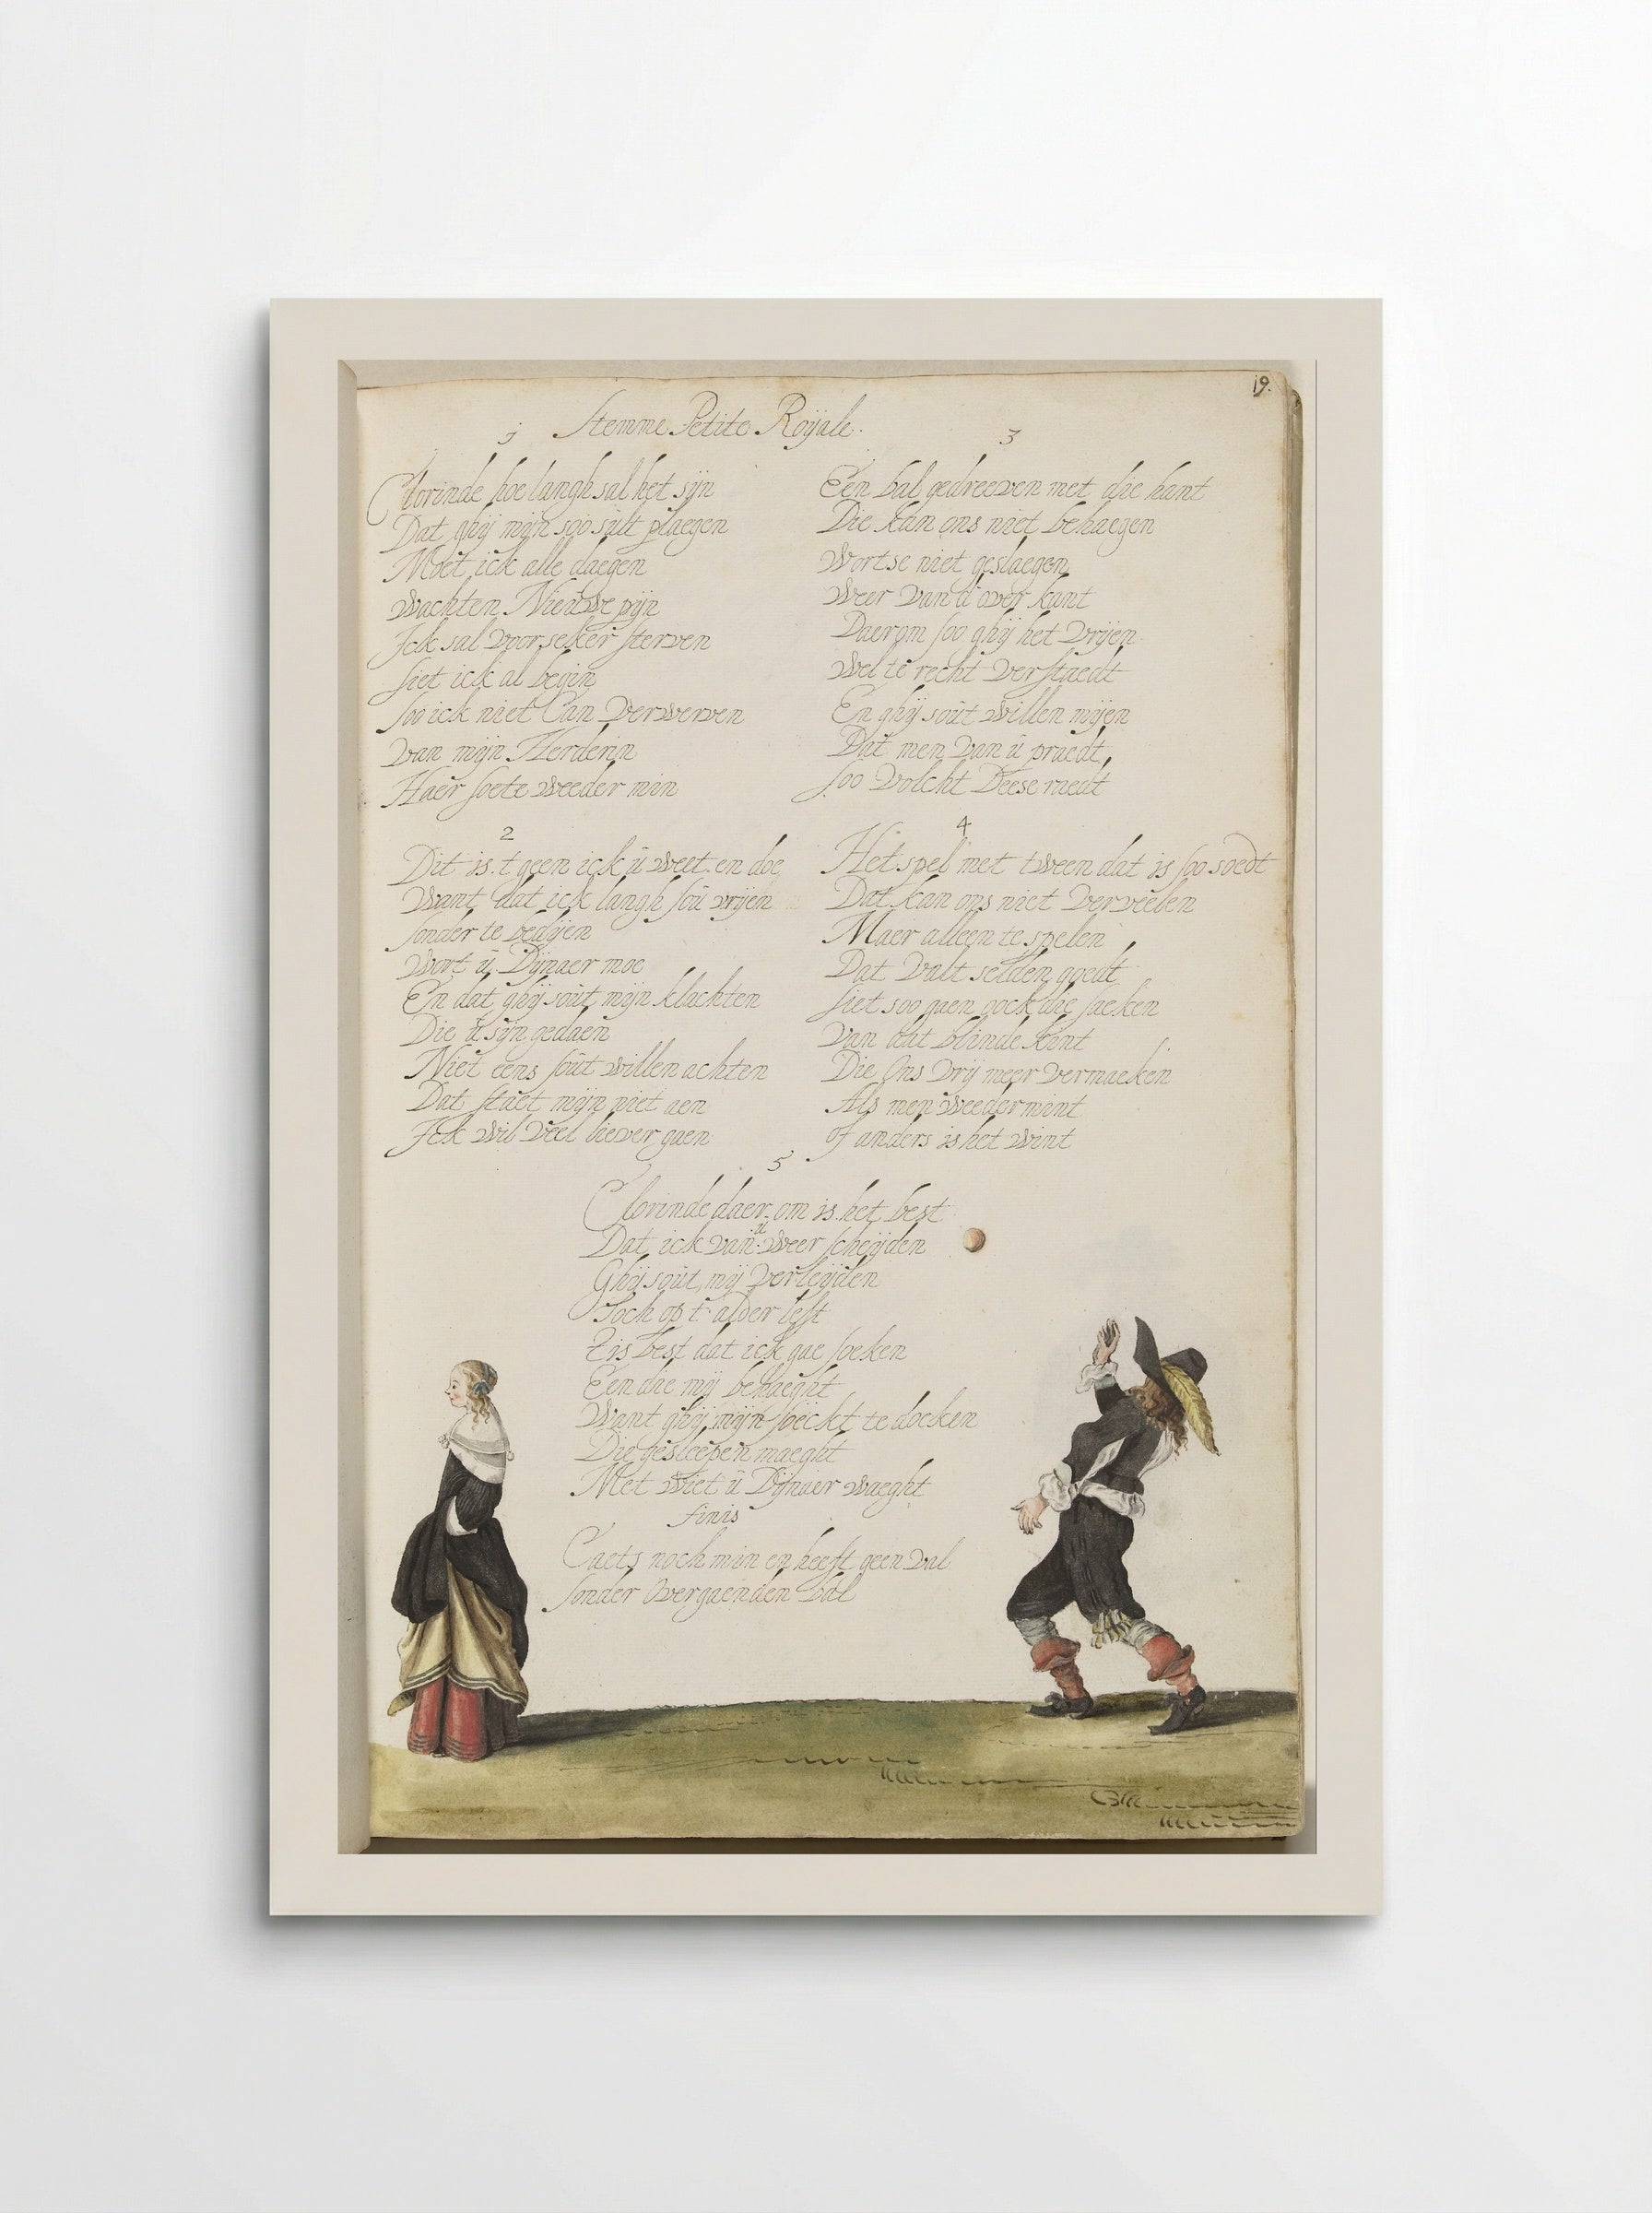 19.
Stemme Petite Roÿale.
1
Clorinde hoe langh sal het sÿn
Dat ghÿ mÿn soo sült plaegen
Moet ick alle daegen
wachten Nieüwe pÿn
Ick sal voorseker sterven
siet ick al begin
soo ick niet Can verwerven
van mÿn Herderin
Haer soete weeder min
2
Dit is t geen ick ü weet en doe
Want dat ick langh soü vrÿen
sonder te bedÿen
Wort ü Dÿnaer moe
En dat ghÿ soüt mÿn klachten
Die ü sÿn gedaen
Niet eens soüt willen achten
Dat staet mÿn niet aen
Ick wil veel liever gaen
3
Een bal gedreeven met die hant
Die kan ons niet behaegen
Wort se niet geslaegen
Weer van d over kant
Daerom soo ghÿ het vrÿen
Wel te recht verstaedt
En ghÿ soüt willen mÿen
Dat men van ü praedt,
soo volcht Deese raedt
4
Het spel met tween dat is soo soedt
Dat kan ons niet verveelen
Maer alleen te spelen
Dat valt selden goedt
siet soo gaen oock die saeken
van dat blinde kint
Die Ons vrÿ meer vermaeken
Als men weedermint
of anders is het wint
5
Clorinde daer om is het best
Dat ick van ü weer scheÿden
Ghÿ soüt mÿ verleÿden
Toch op t alder lest
Tis best dat ick gae soeken
Een die mÿ behaeght
Want ghÿ mÿn soeckt te doeken
Die gesleepen maeght
Met wiet ü Dÿnaer waeght
finis
Caets noch min en heeft geen val
sonder Overgaenden bal